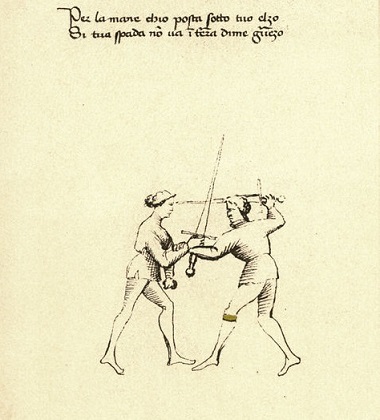 Per la mane chio posta sotto tuo elzo
Si tua spada nõ va ĩ tẽra dime guẽzo